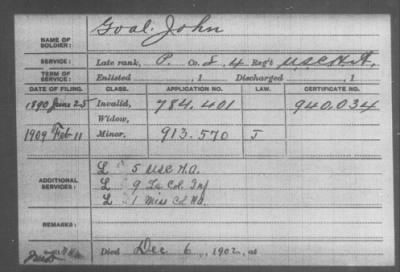 NAME OF SOLDIER: Goal, John
SERVICE: Late rank, P. Co. I, 4 Reg't U.S.C.H.A.
TERM OF SERVICE: Enlisted , 1 Discharged , 1
DATE OF FILING. CLASS. APPLICATION NO. LAW. CERTIFICATE NO.
1890 June 25 Invalid, 784.401 940,034
Widow,
1909 Feb 11 Minor, 913.570 J
ADDITIONAL SERVICES: L 5 USC H.A.
L 9 La Col Inf
L 1 Miss Col H.A.
REMARKS:
Died Dec 6, 1902, at